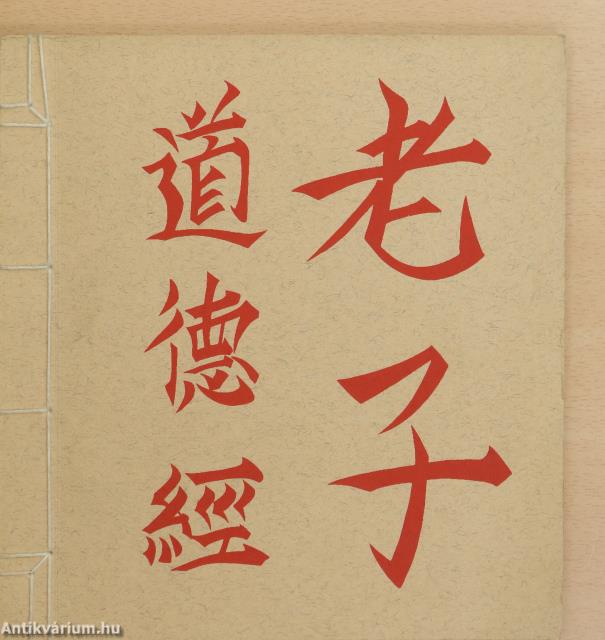 老子
道德經
Antikvárium.hu